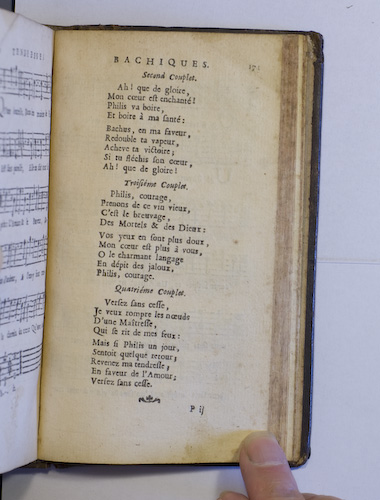 BACHIQUES.
Second Couplet.
Ah! que de gloire,
Mon cœur est enchanté!
Philis va boire,
Et boire à ma santé:
Bachus, en ma faveur,
Redouble ta vapeur,
Acheve ta victoire;
Si tu fléchis son cœur,
Ah! que de gloire!
Troisiéme Couplet.
Philis, courage,
Prenons de ce vin vieux,
C'est le breuvage,
Des Mortels & des Dieux:
Vos yeux en sont plus doux,
Mon cœur est plus à vous,
O le charmant langage
En dépit des jaloux,
Philis, courage.
Quatriéme Couplet.
Versez sans cesse,
Je veux rompre les nœuds
D'une Maîtresse,
Qui se rit de mes feux:
Mais si Philis un jour,
Sentoit quelque retour;
Revenez ma tendresse,
En faveur de l'Amour;
Versez sans cesse.
P ij